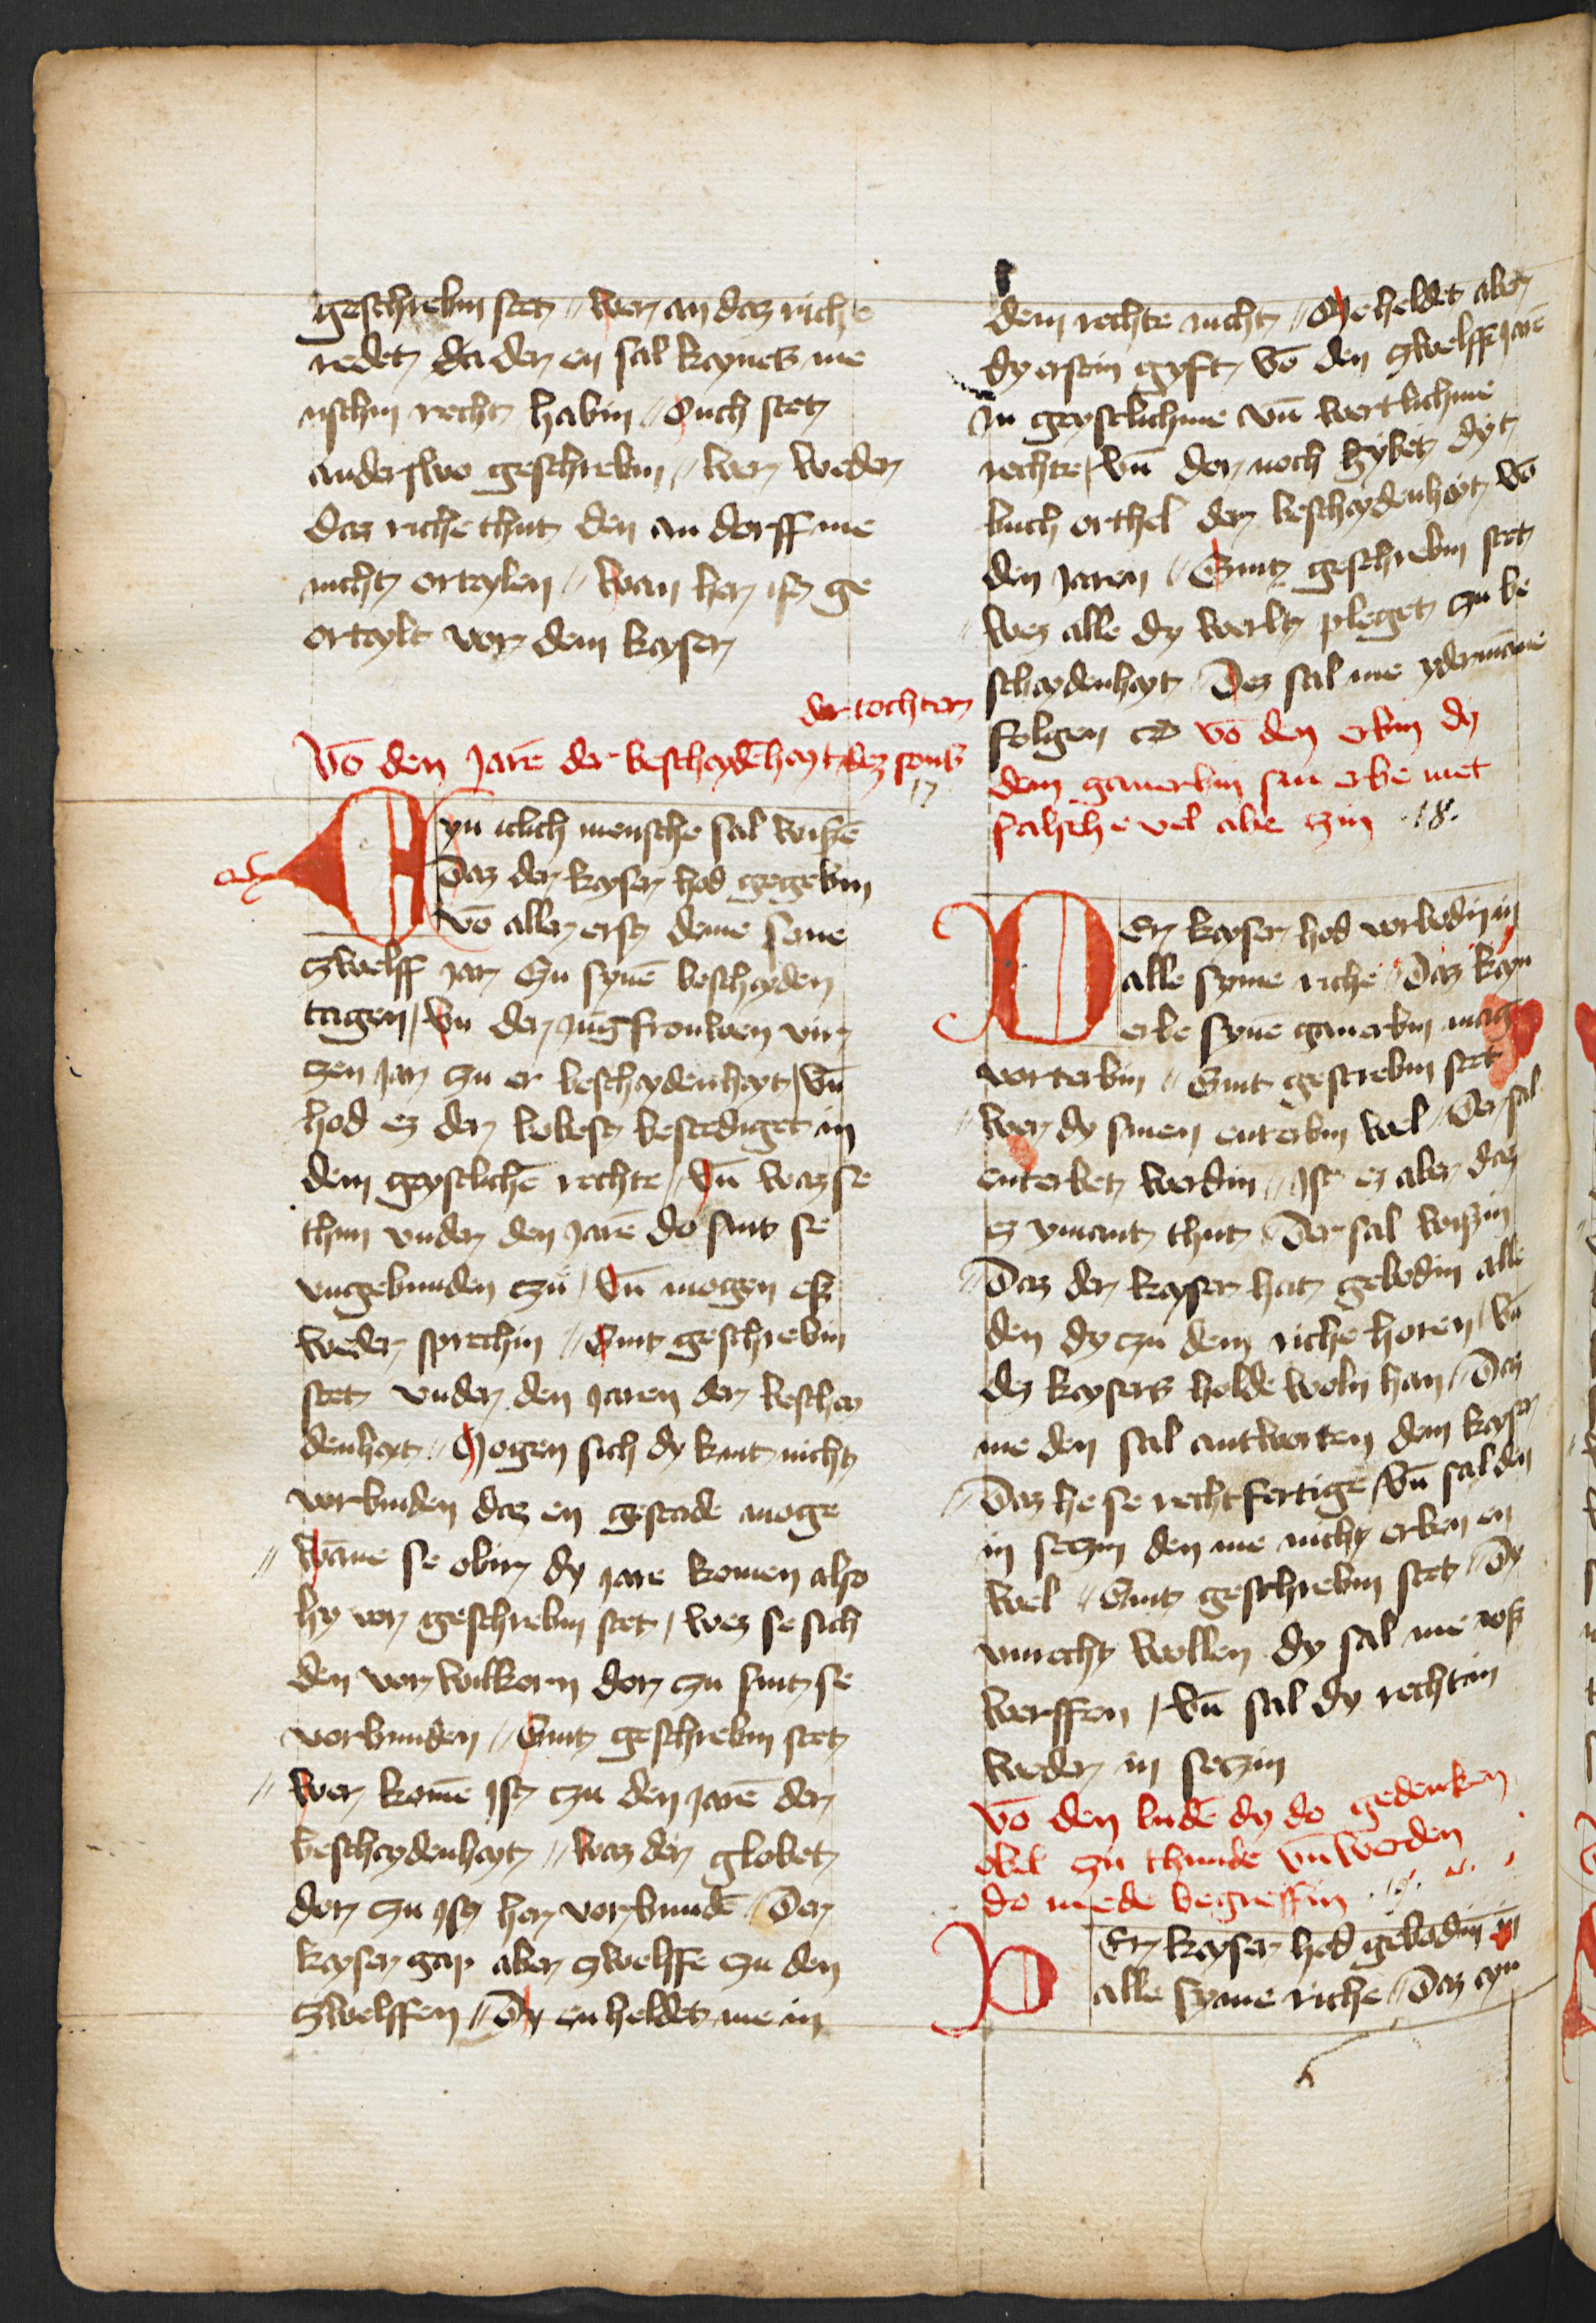 geschrebin stet // wer an daz riche
redet da der en sal kaynes me
nschin recht habin // Ouch stet
anderswo geschrebin // wer weder
daz riche thut den an dorff me
nicht ortaylen // wan her ist ge
ortaylt vor dem kayser
der tochter
Vō den Jarē der beschaydēhayt dez sons
17
Eyn iclich mensche sal wißē
Daz der kayser hod gegebin
vō aller erst deme sone
zwelff jar Czu synē beschayden
tagen / Vn der jūgfrouwen vir
zen Jar zu er beschaydenhayt / vn̄
hod ez der bobest bestediget in
dem geystlichē rechte // Vn̄ waz se
thun vnder den Jarē do sint se
vngebunden zu / Vn̄ mogen eß
weder sprechin // Sint geschrebin
stet vnder den Jaren der beschay
denhayt // Mogen sich dy kint nicht
vorbinden daz en geschade moge
// Wāne se obir dy jare komen also
hy vor geschrebin stet / wez se sich
den vor wilkorn dor zu sint se
vorbunden // Sint geschrebin stet
// Wer komē ist zu den Jarē der
beschaydenhayt // waz der globet
dor zu ist her vorbundē // Der
kayser gap aber zwelffe zu den
zwelffen // Dy en heldet me in
dem rechte nicht // Me heldet aber
dy ersten gyft vō den zwelff jarē
In geystlichme vn̄ wertlichme
rechte / vn̄ der noch gybet dyt
buch orthel der beschaydenhayt vō
den Jaren // Sint geschrebin stet
// Wez alle dy werlt pleget zu be
schaydenhayt Dez sal me ydermāne
folgen vō den erbin dy
dem ganerbin sin erbe met
falsche vel abe zin .18.
Der kayser hod vorbodin in
alle syme riche // Daz kayn
erbe synē ganerbin mag
vorterbin // Sint gescrebin stet
// Wer dy sinen enterbin wel // Der sal
enterbet werdin // Ist ez aber daz
ez ymant thut Der sal wißin
// Daz der kayser hat gebodin alle
den dy zu dem riche horen / Vn̄
dez kaysers holde woln han // Daz
me den sal antworten dem kayser
// Daz he se rechtfertige / Vn̄ sal den
in seczin den me nicht erben en
wel // Sint geschrebin stet // Dy
vnrecht wollen dy sal me voß
werffen / Vn̄ sal dy rechtin
weder in seczin
Vō den ludē dy do gedenken
obel zu thunde vn̄ werden
do mede begreffin .19.
Der kayser hod gebodin in
alle syme riche // Daz ayn